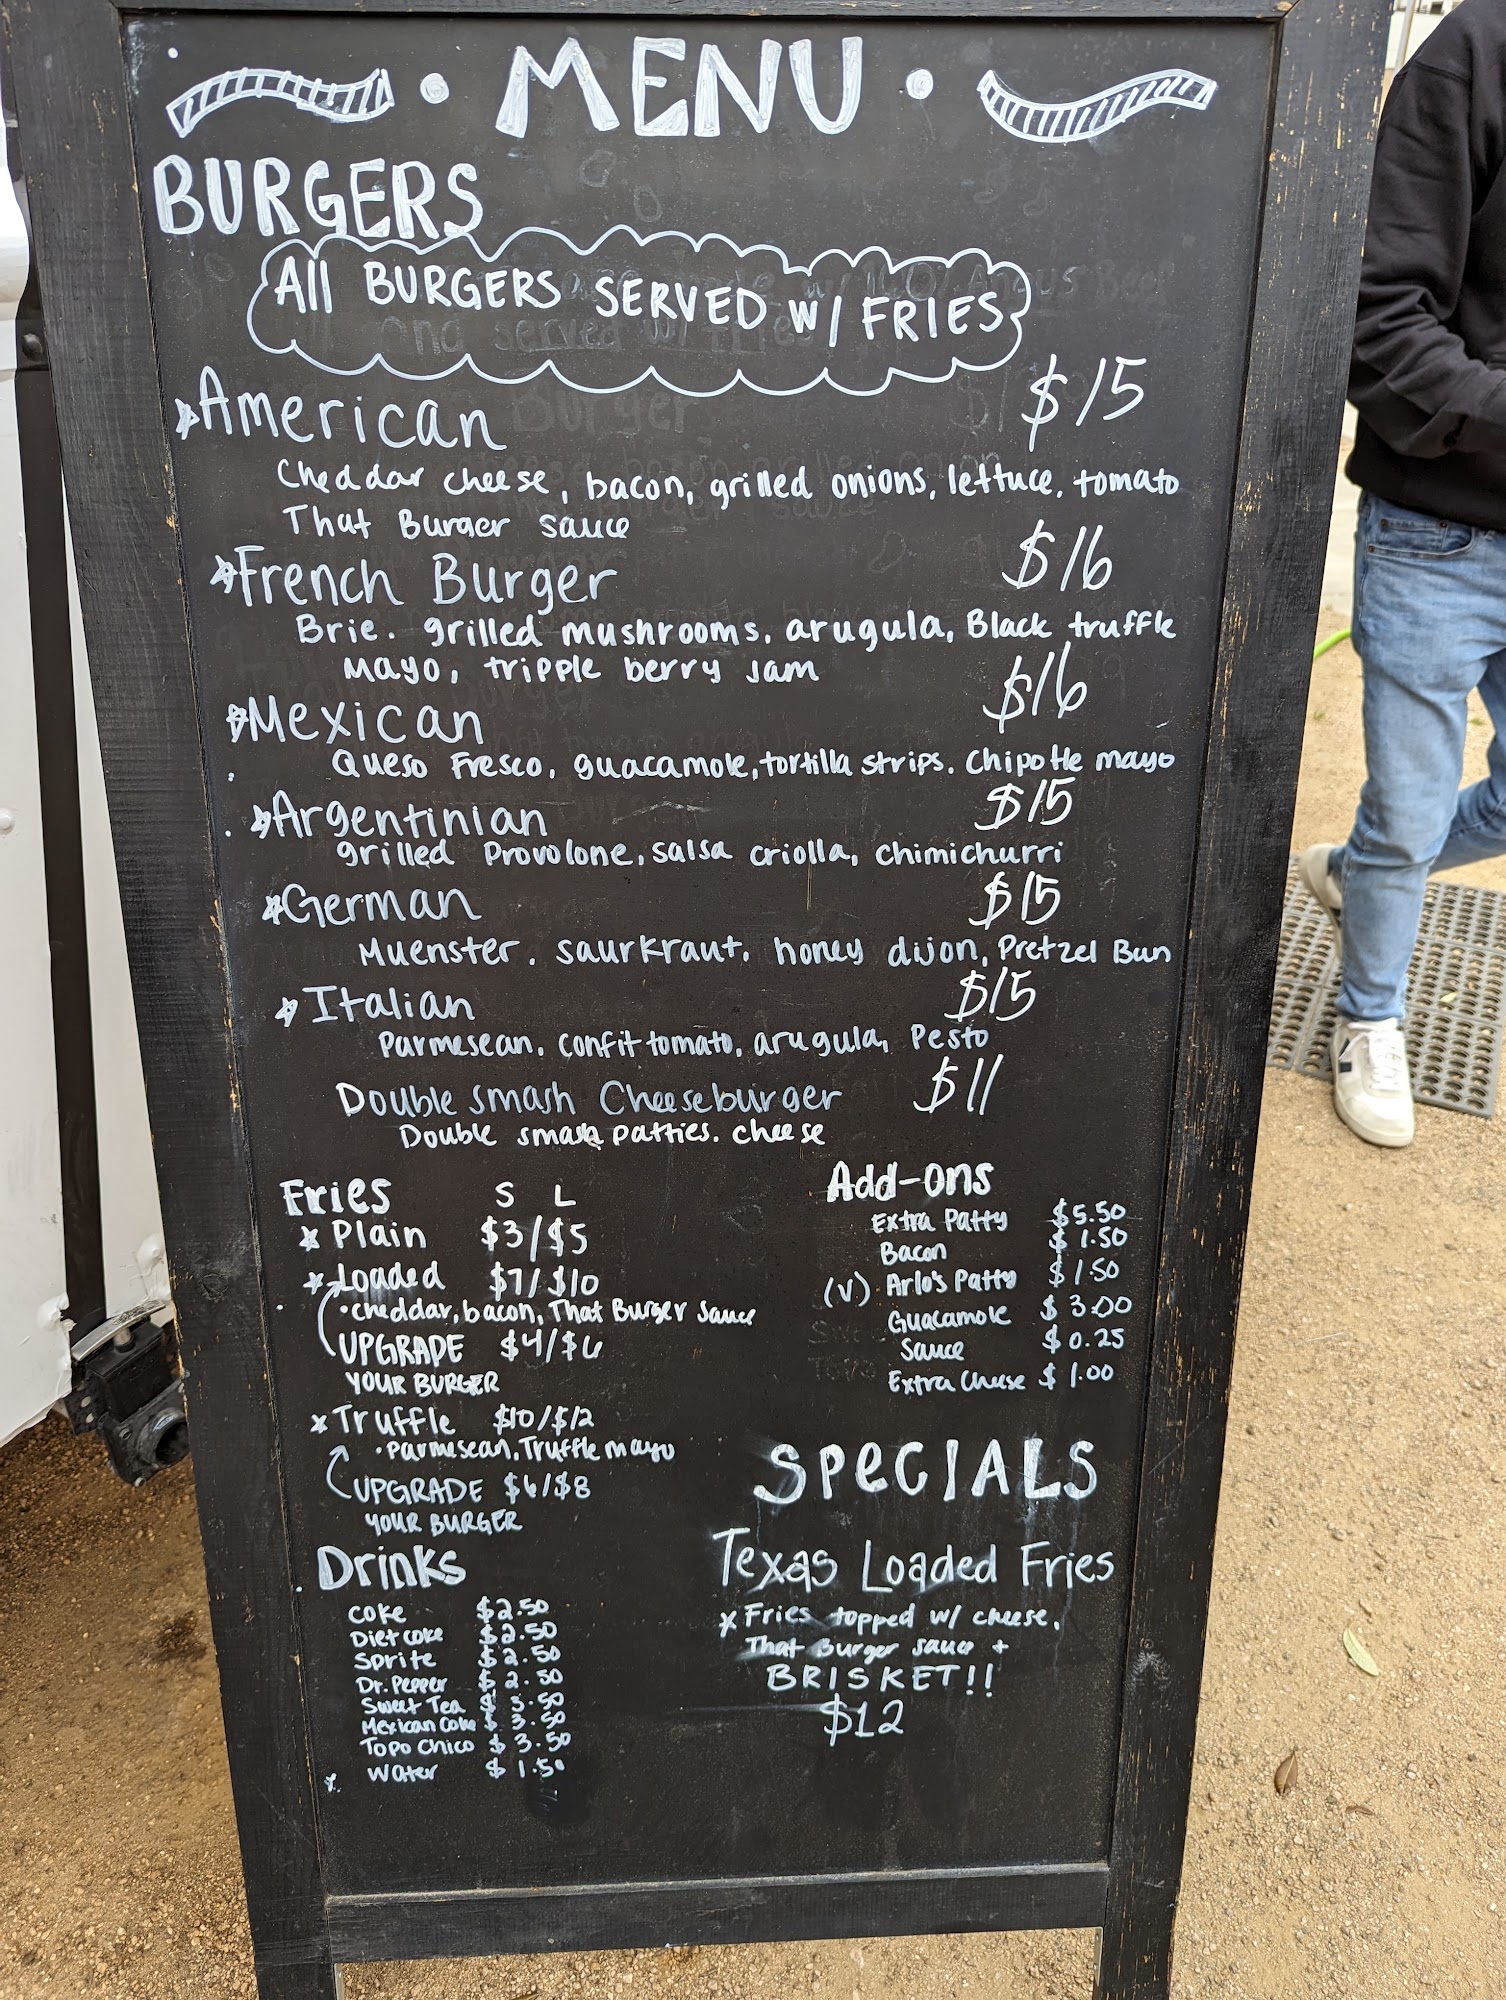 MENU
BURGERS
All BURGERS SERVED W/ FRIES
American $15
Cheddar cheese, bacon, grilled onions, lettuce, tomato
That Burger sauce
French Burger $16
Brie. grilled mushrooms. arugula, Black truffle
Mayo, tripple berry jam
Mexican $16
Queso Fresco, guacamole, tortilla strips. Chipotle mayo
Argentinian $15
grilled Provolone, salsa criolla, chimichurri
German $15
Muenster. saurkraut. honey dijon, Pretzel Bun
Italian $15
Parmesean. confit tomato, arugula, Pesto
Double smash Cheeseburger $11
Double smash patties. cheese
Fries S L
Plain $3/$5
Loaded $7/$10
•cheddar, bacon, That Burger Sauce
UPGRADE $4/$6
YOUR BURGER
Truffle $10/$12
•Parmesean, Truffle mayo
UPGRADE $6/$8
YOUR BURGER
Drinks
Coke $2.50
Diet coke $2.50
Sprite $2.50
Dr. Pepper $2.50
Sweet Tea $3.50
Mexican Coke $3.50
Topo Chico $3.50
Water $1.50
Add-ons
Extra Patty $5.50
Bacon $1.50
(V) Arlo's Patty $1.50
Guacamole $3.00
Sauce $0.25
Extra Cheese $1.00
SPeCIALS
Texas Loaded Fries
Fries topped w/ cheese,
That Burger sauce +
BRISKET!!
$12